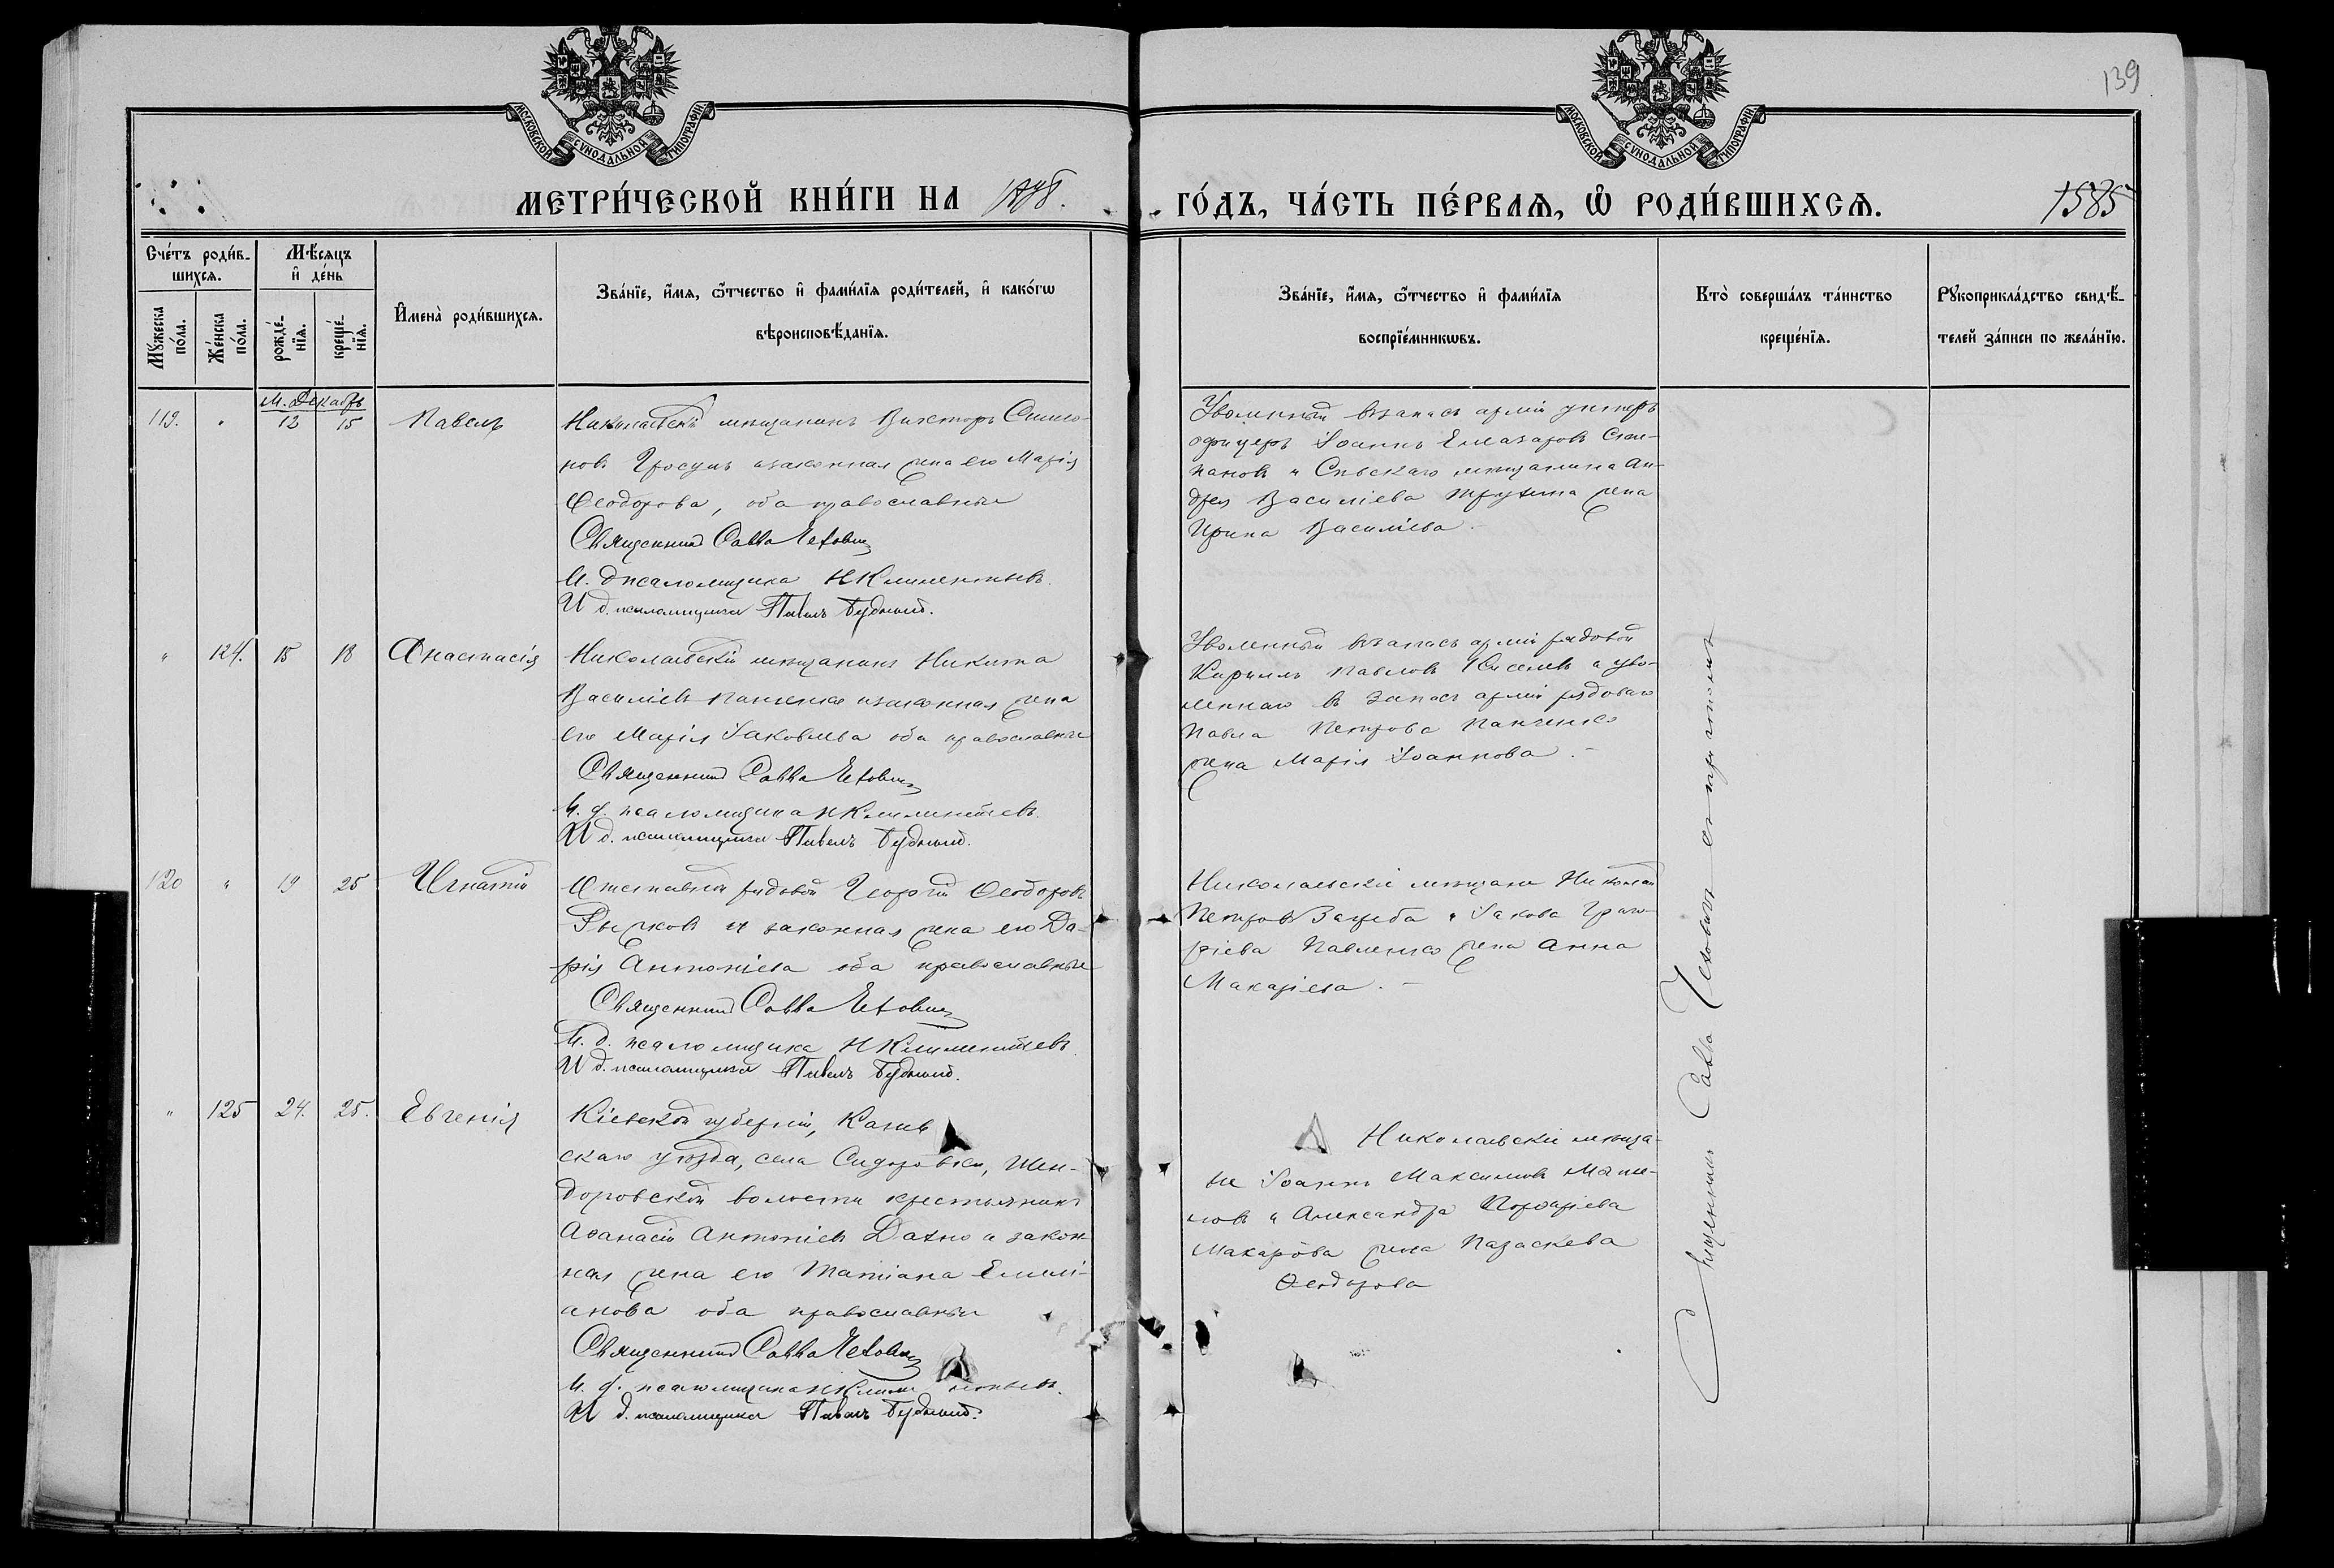 139
МОСКОВСКОЙ СУНОДАЛЬНОЙ ТИПОГРАФІИ
МОСКОВСКОЙ СУНОДАЛЬНОЙ ТИПОГРАФІИ
МЕТРИ́ЧЕСКОЙ КНИ́ГИ НА
ГО́ДЪ, ЧА́СТЬ ПЕ́РВАѦ, Ѡ҆ РОДИ́ВШИХСѦ.
1585
Сче́тъ роди́в-
шихсѧ.
Мѣ́сѧцъ
и҆ де́нь
Мꙋ́жеска по́ла.
Же́нска по́ла.
рожде́-
нїѧ.
креще́-
нїѧ.
И҆мена̀ роди́вшихсѧ.
Зва́нїе, и҆́мѧ, ѻ҆́тчество и҆ фами́лїѧ роди́телей, и҆ како́гѡ
вѣроисповѣ́данїѧ.
Зва́нїе, и҆́мѧ, ѻ҆́тчество и҆ фами́лїѧ
воспрїе́мникѡвъ.
Кто̀ соверша́лъ та́инство
креще́нїѧ.
Рꙋкоприкла́дство свидѣ́-
телей за́писи по жела́нїю.
М. Декабрь
119. " 12 15 Павелъ
Николаевскій мещанинъ Викторъ Симо-
новъ изаконная жена его Марія
Ѳеодорова, оба православные
Священникъ Савва Чехович
И. д псаломщика Н Климентьевъ.
И д. псаломщика Павелъ Будный.
Уволенный взапасъ арміи унтеръ
офицеръ Іоаннъ Елеазаровъ Сте-
пановъ и мещанина Ан-
дрея Василіева жена
Ирина Василіева. –
" 124. 15 18 Анастасія
Николаевскій мещанинъ Никита
Василіевъ Панченко изаконная жена
его Марія Іаковлева оба православные
Священникъ Савва Чехович
И. д. псаломщика Н Климентьевъ.
И д. псаломщика Павелъ Будный.
Уволенный взапасъ арміи рядовой
Кириллъ Павловъ Киселевъ и уво-
леннаго въ запасъ арміи рядоваго
Павла Петрова Панченко
жена Марія Іоаннова. –
120 " 19 25 Игнатій
Отставной рядовой Георгій Ѳеодоровъ
Рыжковъ и законная жена его Да-
рія Антоніева оба православные
Священникъ Савва Чехович
И. д. псаломщика Н Климентьевъ
И д. псаломщика Павелъ Будный.
Николаевскіе мещане Николай
Петровъ и Іакова Григо-
ріева Павленко жена Анна
Макаріева. –
" 125 24. 25. Евгенія
Кіевской губерніи, Канев
скаго уезда, села Сидоровки, Шен-
доровской волости крестьянинъ
Аѳанасій Антоніевъ Дахно и закон
ная жена его Татіана Емилі-
анова оба православные
Священникъ Савва Чехович
И. д. псаломщика Н Климентьевъ.
И д. псаломщика Павелъ Будный.
Николаевскіе меща-
не Іоаннъ Максимовъ
и Александра
Макарова жена Параскева
Ѳеодорова
Священникъ Савва Чехович